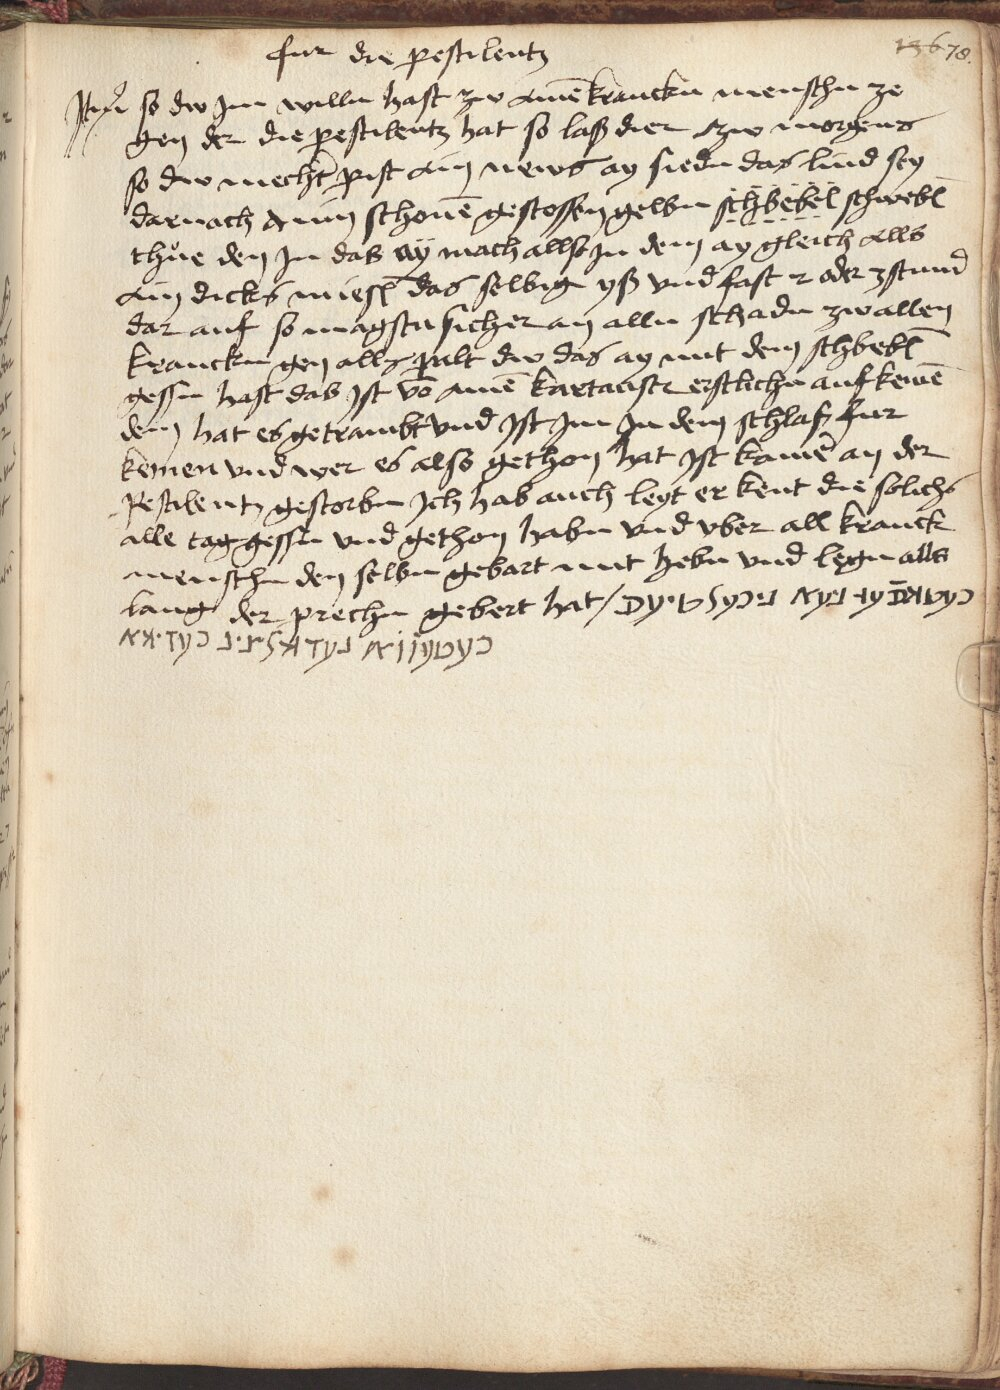 fur die pestilentz
13678.
Item so dw Im willn hast zw ainē kranckn menschn ze
gen der die pestilentz hat so lasz dier zw morgens
so dw nechtr pist ain news ay siedn das lind sey
darnach nim schonē gestossen gelbn schbebel schwebl
thůe den In das aÿ mach alls In dem ay gleich alls
ain dicks miesl das selbig ysz vnd fast 2 oder 3 stund
dar auf so magstu sicher an alln schadn zw allen
kranckn gen all palt dw das ay mit dem schbebl
gessn hast das ist vō ainē kartauser erstlichn aufkemē
dem hat es getrambt vnd Ist Im In dem schlaf fur
kemen vnd wer es also gethon hat Ist kainē an der
Pestilentz gestorbn Ich hab auch leyt er kent die solichs
alle tag gessn vnd gethon habn vnd vber all kranck
menschn den selbn gebart mit hebn vnd legn alls
lang der prechn gebert hat /